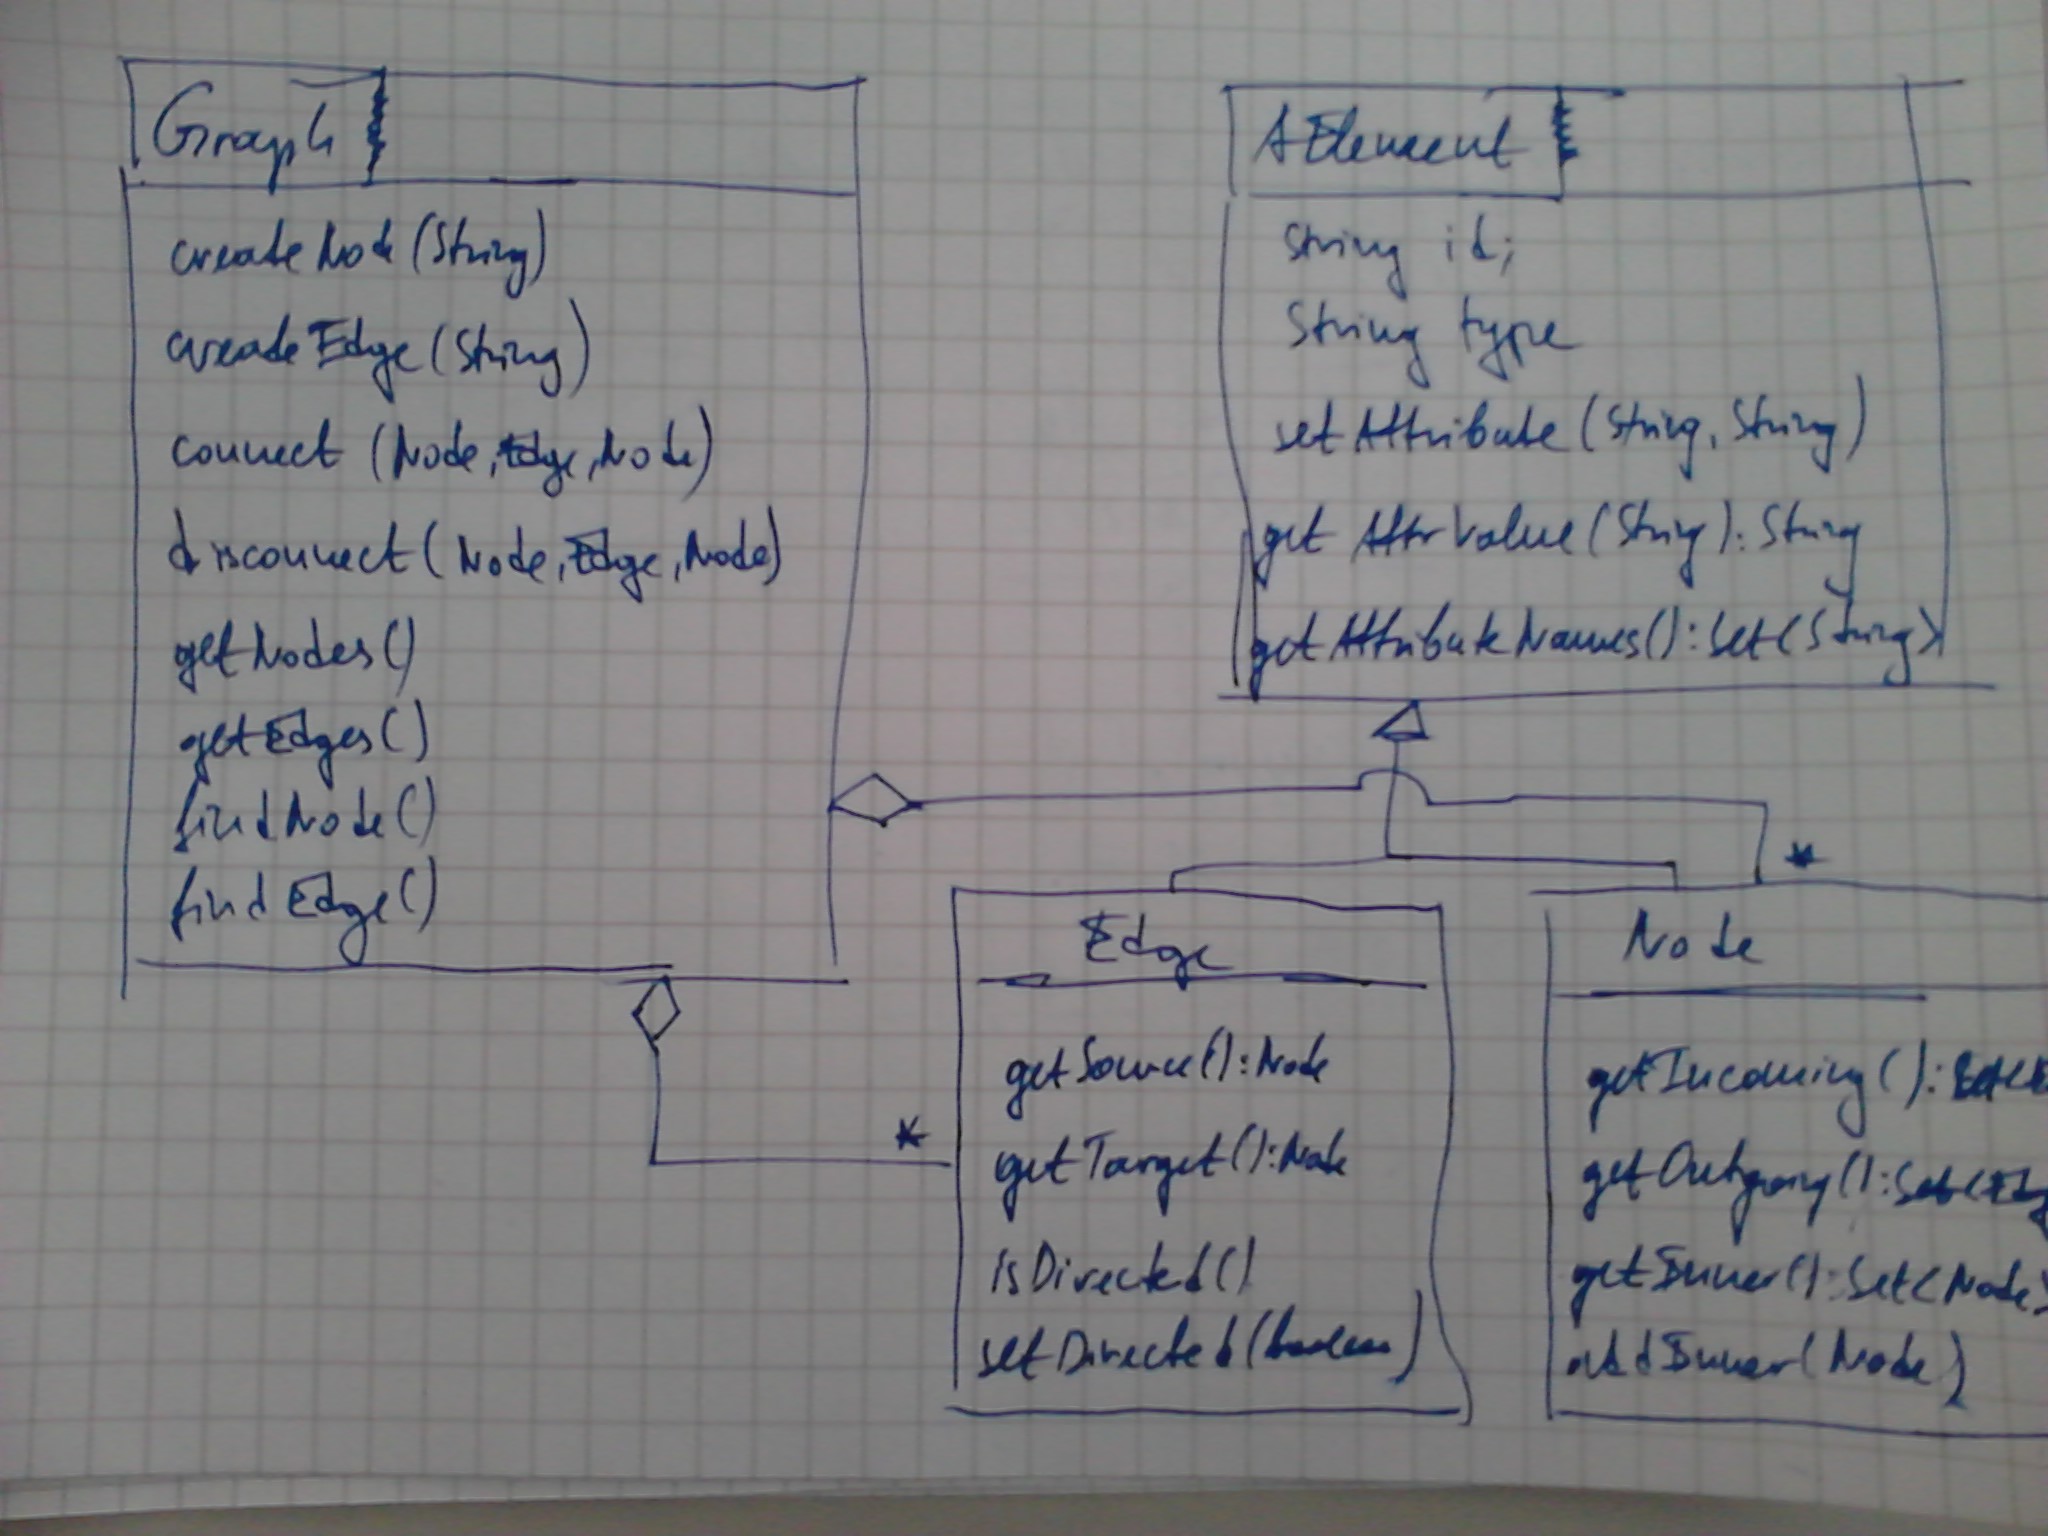 Graph
createNode(String)
createEdge(String)
connect (Node,Edge,Node)
disconnect(Node,Edge,Node)
getNodes()
getEdges()
findNode()
findEdge()
AElement
String id;
String type
setAttribute(String, String)
getAttrValue(String):String
getAttributeNames():Set<String>
*
*
Edge
getSource():Node
getTarget():Node
isDirected()
setDirected(boolean)
Node
getIncoming():Set<E
getOutgoing():Set<Edg
getInner():Set<Node>
addInner(Node)